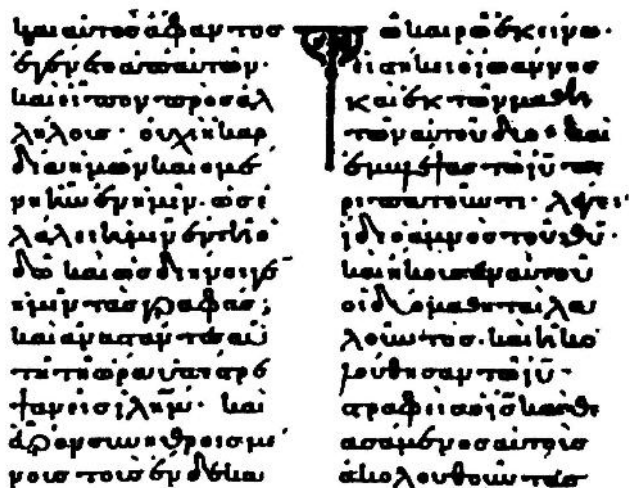 καὶ αὐτὸς ἄφαντος
ἐγένετο ἀπ' αὐτῶν·
καὶ εἶπον πρὸς ἀλ
λήλους· οὐχὶ ἡ καρ
δία ἡμῶν καιομέ
νη ἦν ἐν ἡμῖν· ὡς ἐ
λάλει ἡμῖν ἐν τῇ ὁ
δῷ καὶ ὡς διήνοιγε
ἡμῖν τὰς γραφάς;
καὶ ἀναστάντες αὐ
τῇ τῇ ὥρα ὑπέστρε
ψαν εἰς ιλη̄μ· καὶ
εὗρον συνηθροισμέ
νους τοὺς ἕνδεκα
Τῶ καιρῶ ἐκείνω·
εἱστήκει ὁ ἰωάννης
καὶ ἐκ τῶν μαθη
τῶν αὐτοῦ δύο· καὶ
ἐμβλέψας τῶ ιῡ πε
ριπατοῦντι· λέγει·
ἴδε ὁ ἀμνὸς τοῦ θῡ·
καὶ ἤκουσαν αὐτοῦ
οἱ δύο μαθηταὶ λα
λοῦντος· καὶ ἠκο
λούθησαν τῶ ιῡ·
στραφεὶς ὁ ις̄ καὶ θε
ασάμενος αὐτοὺς
ἀκολουθοῦντας